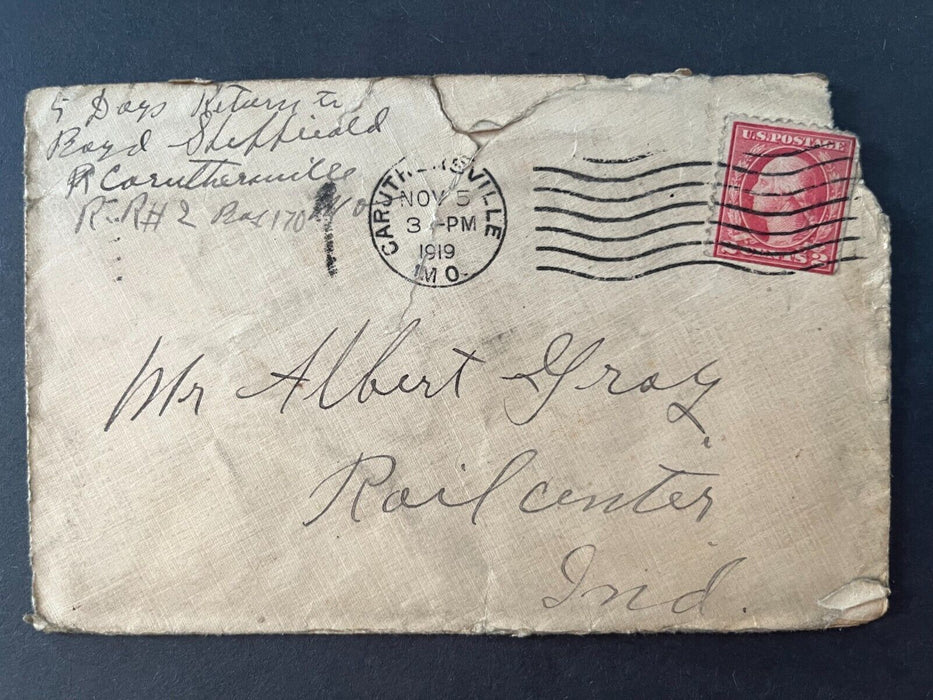 5 Days Return to
Boyd Sheffieald
R Caruthersville
R-R# 2 Box 170 Mo
CARUTHERSVILLE
NOV 5
3 -PM
1919
MO.
U.S. POSTAGE
2 CENTS 2
Mr Albert Gray
Railcenter
Ind.